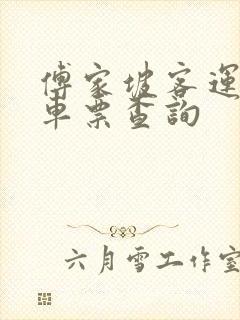 傅家坡客運
車票查詢
六月雪工作室